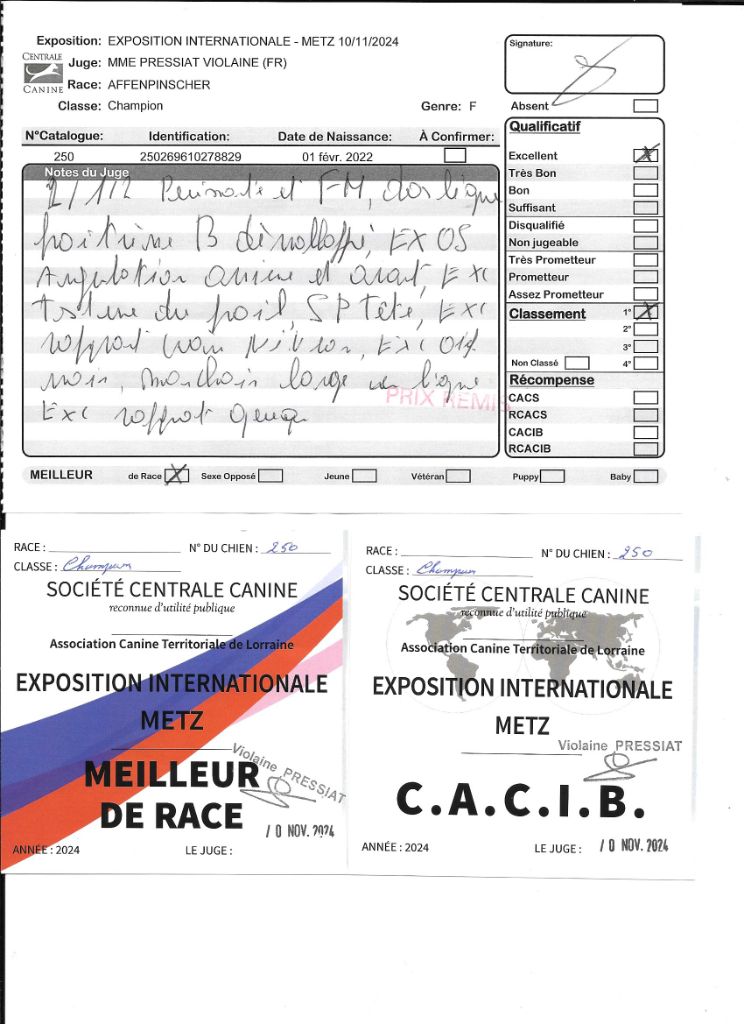 Exposition: EXPOSITION INTERNATIONALE - METZ 10/11/2024
CENTRALE CANINE
Juge: MME PRESSIAT VIOLAINE (FR)
Race: AFFENPINSCHER
Classe: Champion Genre: F
Signature:
Absent
N°Catalogue: Identification: Date de Naissance: À Confirmer:
250 250269610278829 01 févr. 2022
Notes du Juge
et FM, dos ligne
poitrine B développé, EX OS
Angulation et avant, Exc
texture du poil, SP Tête, Exc
rapport Exc
large
Exc rapport
PRIX REMIS
Qualificatif
Excellent X
Très Bon
Bon
Suffisant
Disqualifié
Non jugeable
Très Prometteur
Prometteur
Assez Prometteur
Classement 1° X
2°
3°
Non Classé 4°
Récompense
CACS
RCACS
CACIB
RCACIB
MEILLEUR de Race X Sexe Opposé Jeune Vétéran Puppy Baby
RACE : N° DU CHIEN : 250
CLASSE : Champion
SOCIÉTÉ CENTRALE CANINE
reconnue d'utilité publique
Association Canine Territoriale de Lorraine
EXPOSITION INTERNATIONALE
METZ
Violaine PRESSIAT
MEILLEUR
DE RACE
10 NOV. 2024
ANNÉE : 2024 LE JUGE :
RACE : N° DU CHIEN : 250
CLASSE : Champion
SOCIÉTÉ CENTRALE CANINE
reconnue d'utilité publique
Association Canine Territoriale de Lorraine
EXPOSITION INTERNATIONALE
METZ
Violaine PRESSIAT
C.A.C.I.B.
ANNÉE : 2024 LE JUGE : 10 NOV. 2024